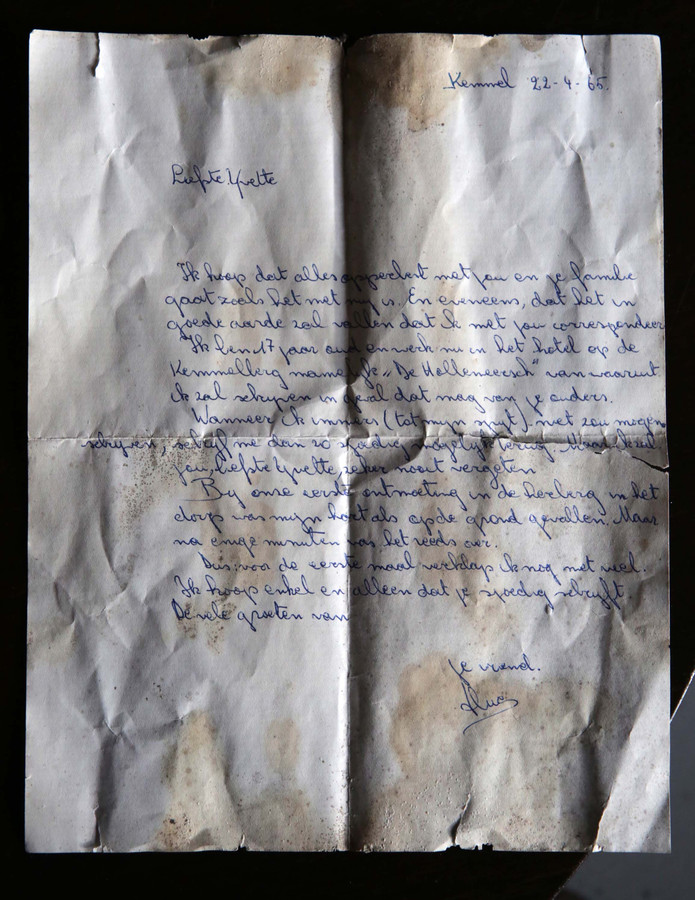 Kemmel 22-4-65.
Liefste Yvette
Ik hoop dat alles opperbest met jou en je familie
gaat zoals het met mij is. En eveneens, dat het in
goede aarde zal vallen dat ik met jou correspondeer
Ik ben 17 jaar oud en werk nu in het hotel op de
Kemmelberg namelijk „De Hollemeersch" van waaruit
ik zal schrijven in geval dat mag van je ouders.
Wanneer ik immers (tot mijn spijt) niet zou mogen
schrijven, schrijf me dan zo spoedig mogelijk terug. Maar ik zal
jou, liefste Yvette, zeker nooit vergeten
Bij onze eerste ontmoeting in de herberg in het
dorp was mijn hart als op de grond gevallen. Maar
na enige minuten was het reeds over.
Dus: voor de eerste maal verklap ik nog niet veel.
Ik hoop enkel en alleen dat je spoedig schrijft.
De vele groeten van
je vriend.
Luc